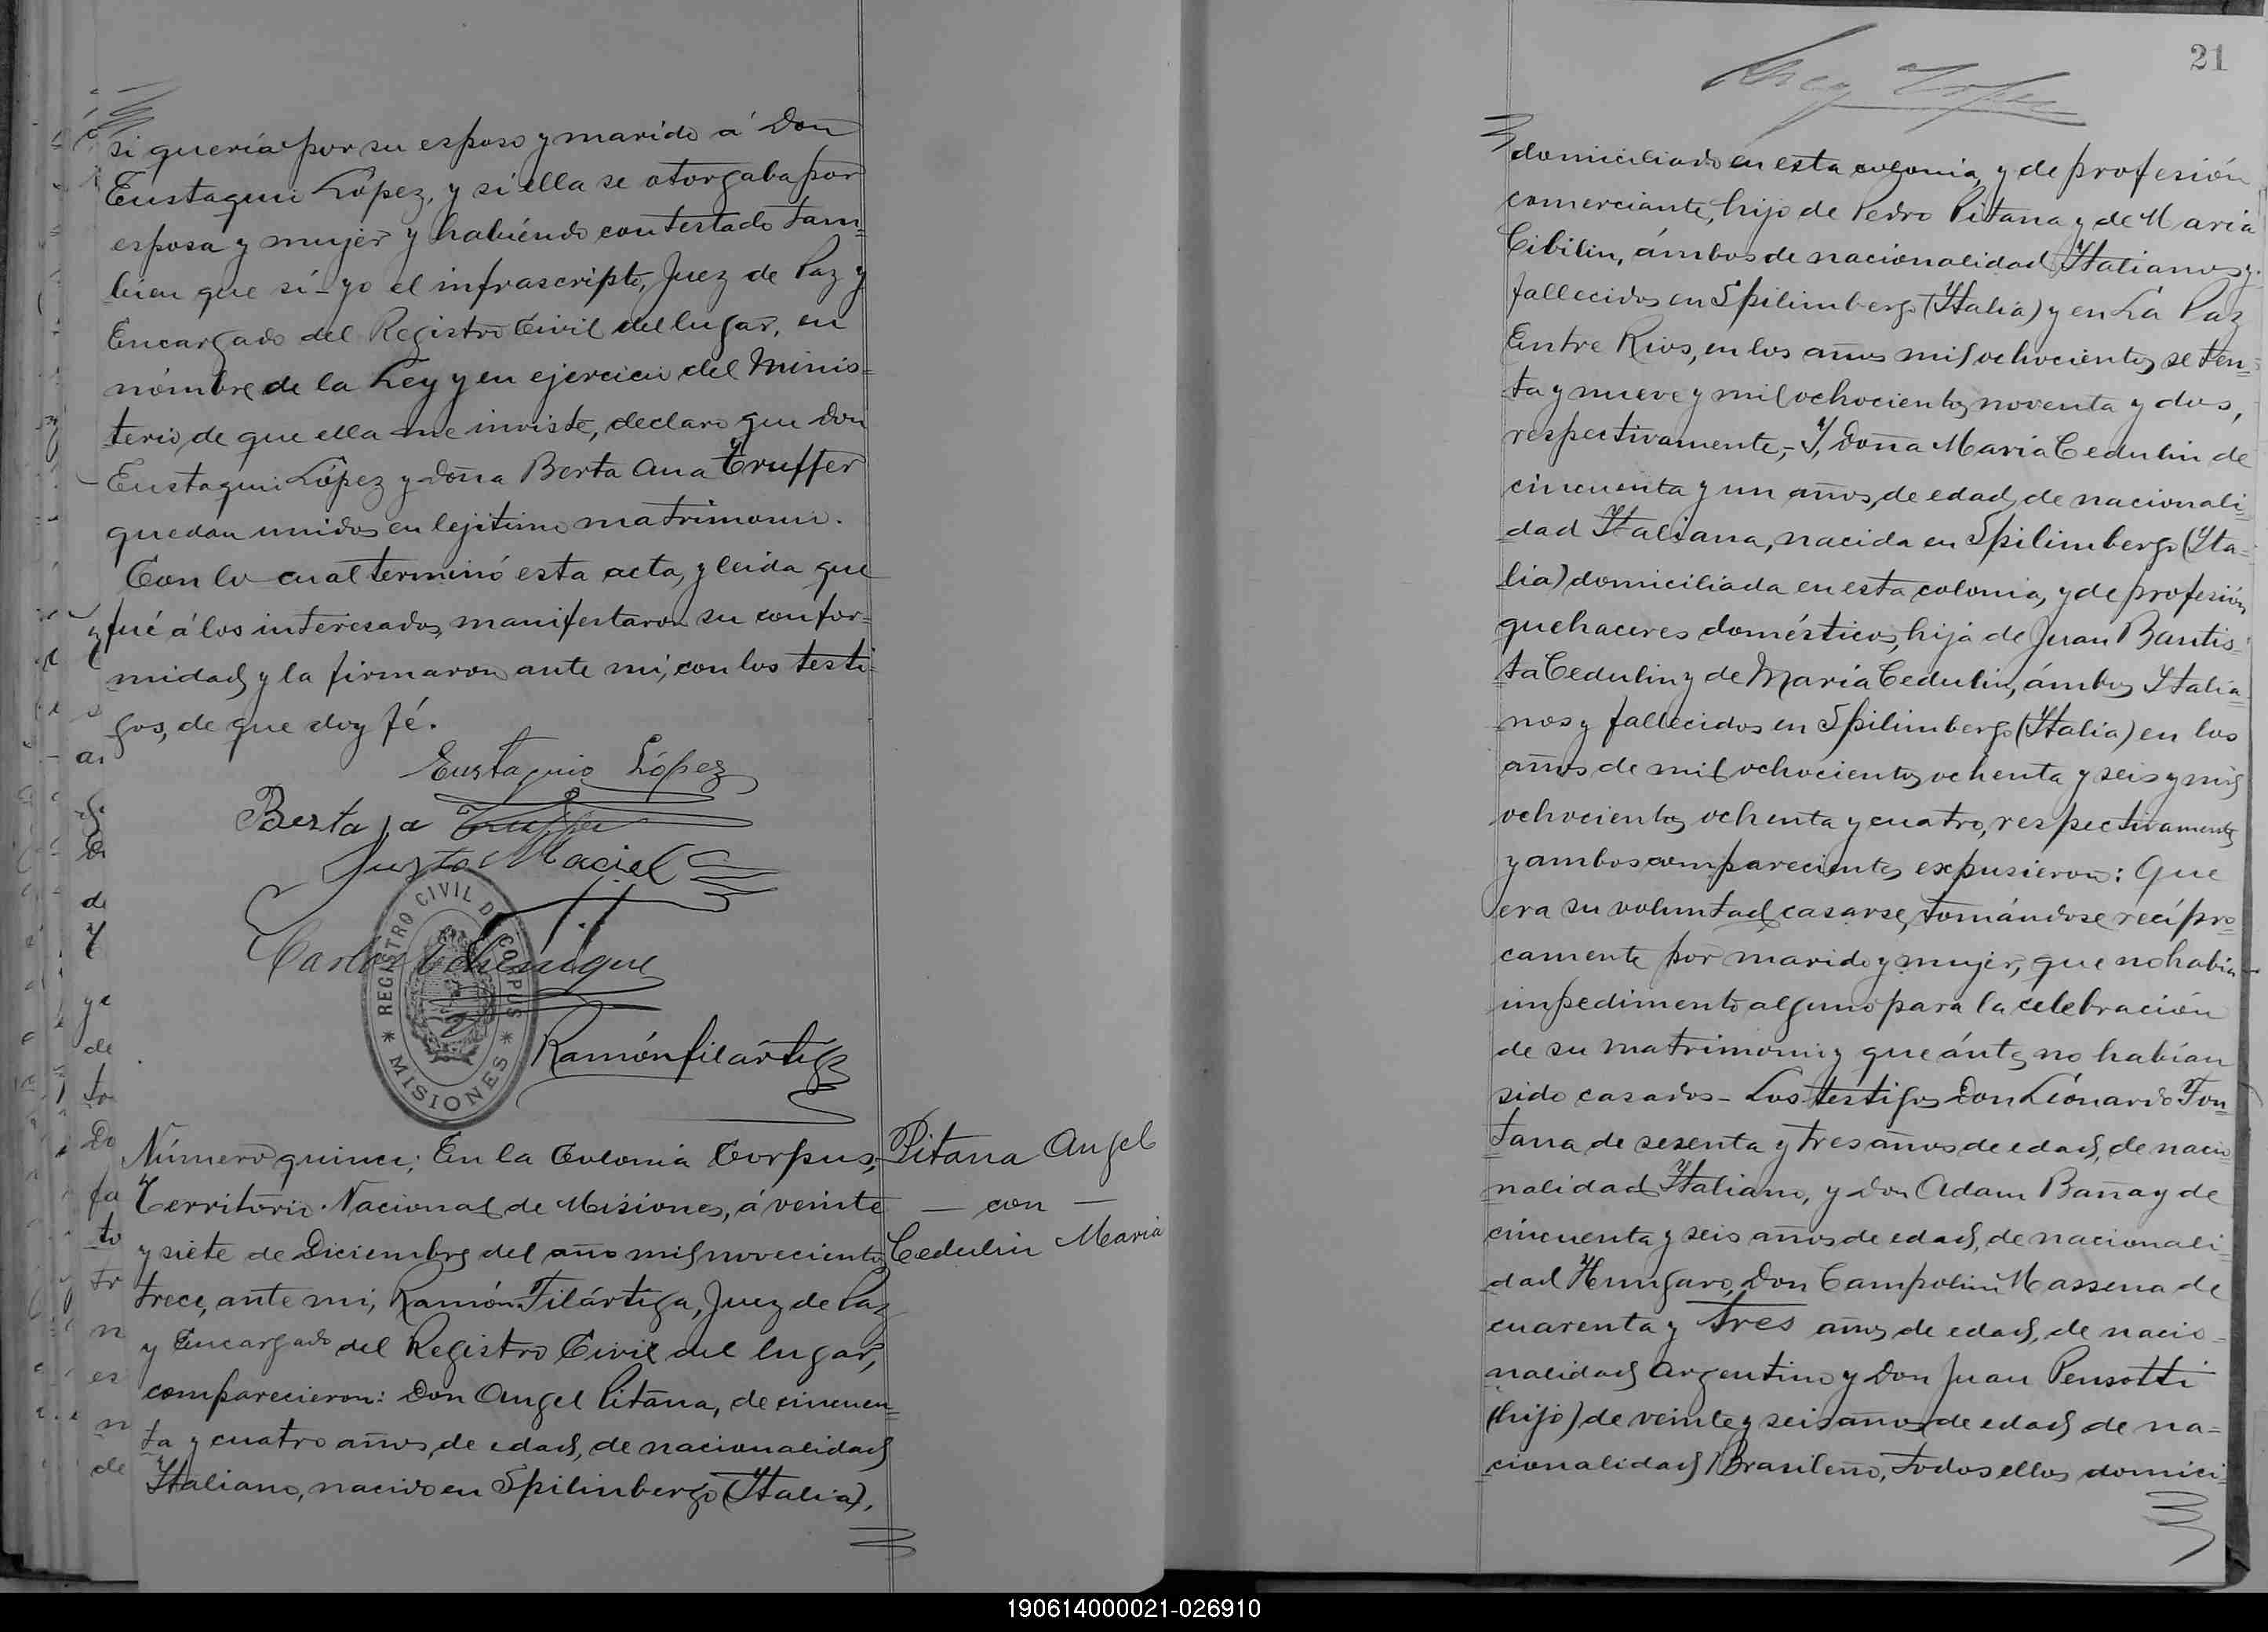 si quería por su esposo y marido á Don
Eustaquio López, y si ella se otorgaba por
esposa y mujer y habiéndo contestado tam=
bien que sí - yo el infrascripto, Juez de Paz y
Encargado del Registro Civil del lugar, en
nómbre de la Ley y en ejercicio del Minis=
terio, de que ella me inviste, declaro que Don
Eustaquio López y Doña Berta Ana Truffer
quedan unidos en lejítimo matrimonio.
Con lo cual terminó esta acta, y leida que
fué á los interesados, manifestaron su confor=
midad y la firmaron ante mi, con los testi=
gos, de que doy fé.
Eustaquio López
Berta a Truffer
Justo Maciel
Carlos Echenique
REGISTRO CIVIL DE CORPUS
* MISIONES *
Ramón Filártiga
Número quince; En la Colonia Corpus,
Territorio Nacional de Misiones, á veinte
y siete de Diciembre del año mil novecientos
trece, ante mi, Ramón Filártiga, Juez de Paz
y Encargado del Registro Civil del lugar,
comparecieron: Don Angel Pitana, de cincuen=
ta y cuatro años, de edad, de nacionalidad
Italiano, nacido en Spilinbergo (Italia),
Pitana Angel
— con —
Cedulin Maria
21
domiciliado en esta colonia, y de profesión
comerciante, hijo de Pedro Pitana y de Maria
Cibilin, ámbos de nacionalidad Italianos y
fallecidos en Spilimbergo (Italia) y en La Paz
Entre Rios, en los años mil ochocientos seten=
ta y nueve y mil ochocientos noventa y dos,
respectivamente,- Y, Doña Maria Cedulin de
cincuenta y un años, de edad, de nacionali=
dad Italiana, nacida en Spilimbergo (Ita=
lia) domiciliada en esta colonia, y de profesión
quehaceres domésticos, hija de Juan Bautis=
ta Cedulin y de María Cedulin, ámbos Italia
nos y fallecidos en Spilimbergo (Italia) en los
años de mil ochocientos ochenta y seis y mil
ochocientos ochenta y cuatro, respectivamente
y ambos comparecientes expusieron: Que
era su voluntad casarse, tomándose recípro=
camente por marido y mujer, que no habia
impedimento alguno para la celebración
de su matrimonio y que ántes no habían
sido casados - Los testigos Don Leónardo Fon=
tana de sesenta y tres años de edad, de nacio=
nalidad Italiano, y Don Adam Bañay de
cincuenta y seis años de edad, de nacionali=
dad Hungaro, Don Campolin Massena de
cuarenta y tres años de edad, de nacio=
nalidad Argentino y Don Juan Pensotti
(hijo) de veinte y seis años de edad de na=
cionalidad Brasileño, todos ellos domici=
190614000021-026910